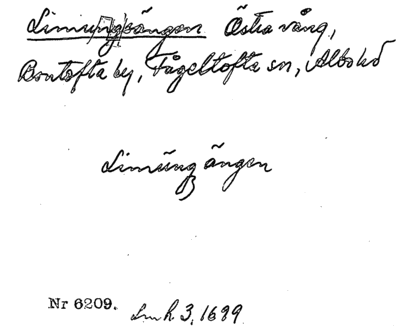 Limungängen Östra vång,
Bontofta by, Fågeltofta sn, Albo hd
Limüng ängen
Nr 6209. Lmh 3, 1699